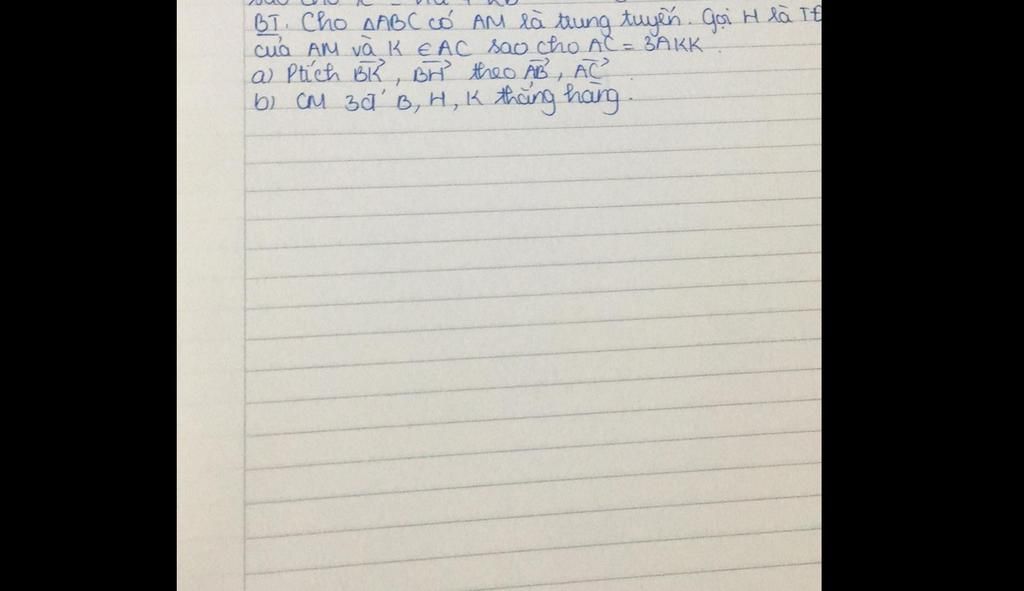 BT. Cho ΔABC có AM là trung tuyến. Gọi H là Tđ
của AM và K ∈ AC sao cho AC = 3AKK.
a) Ptích BK→, BH→ theo AB→, AC→
b) CM 3đ' B, H, K thẳng hàng.